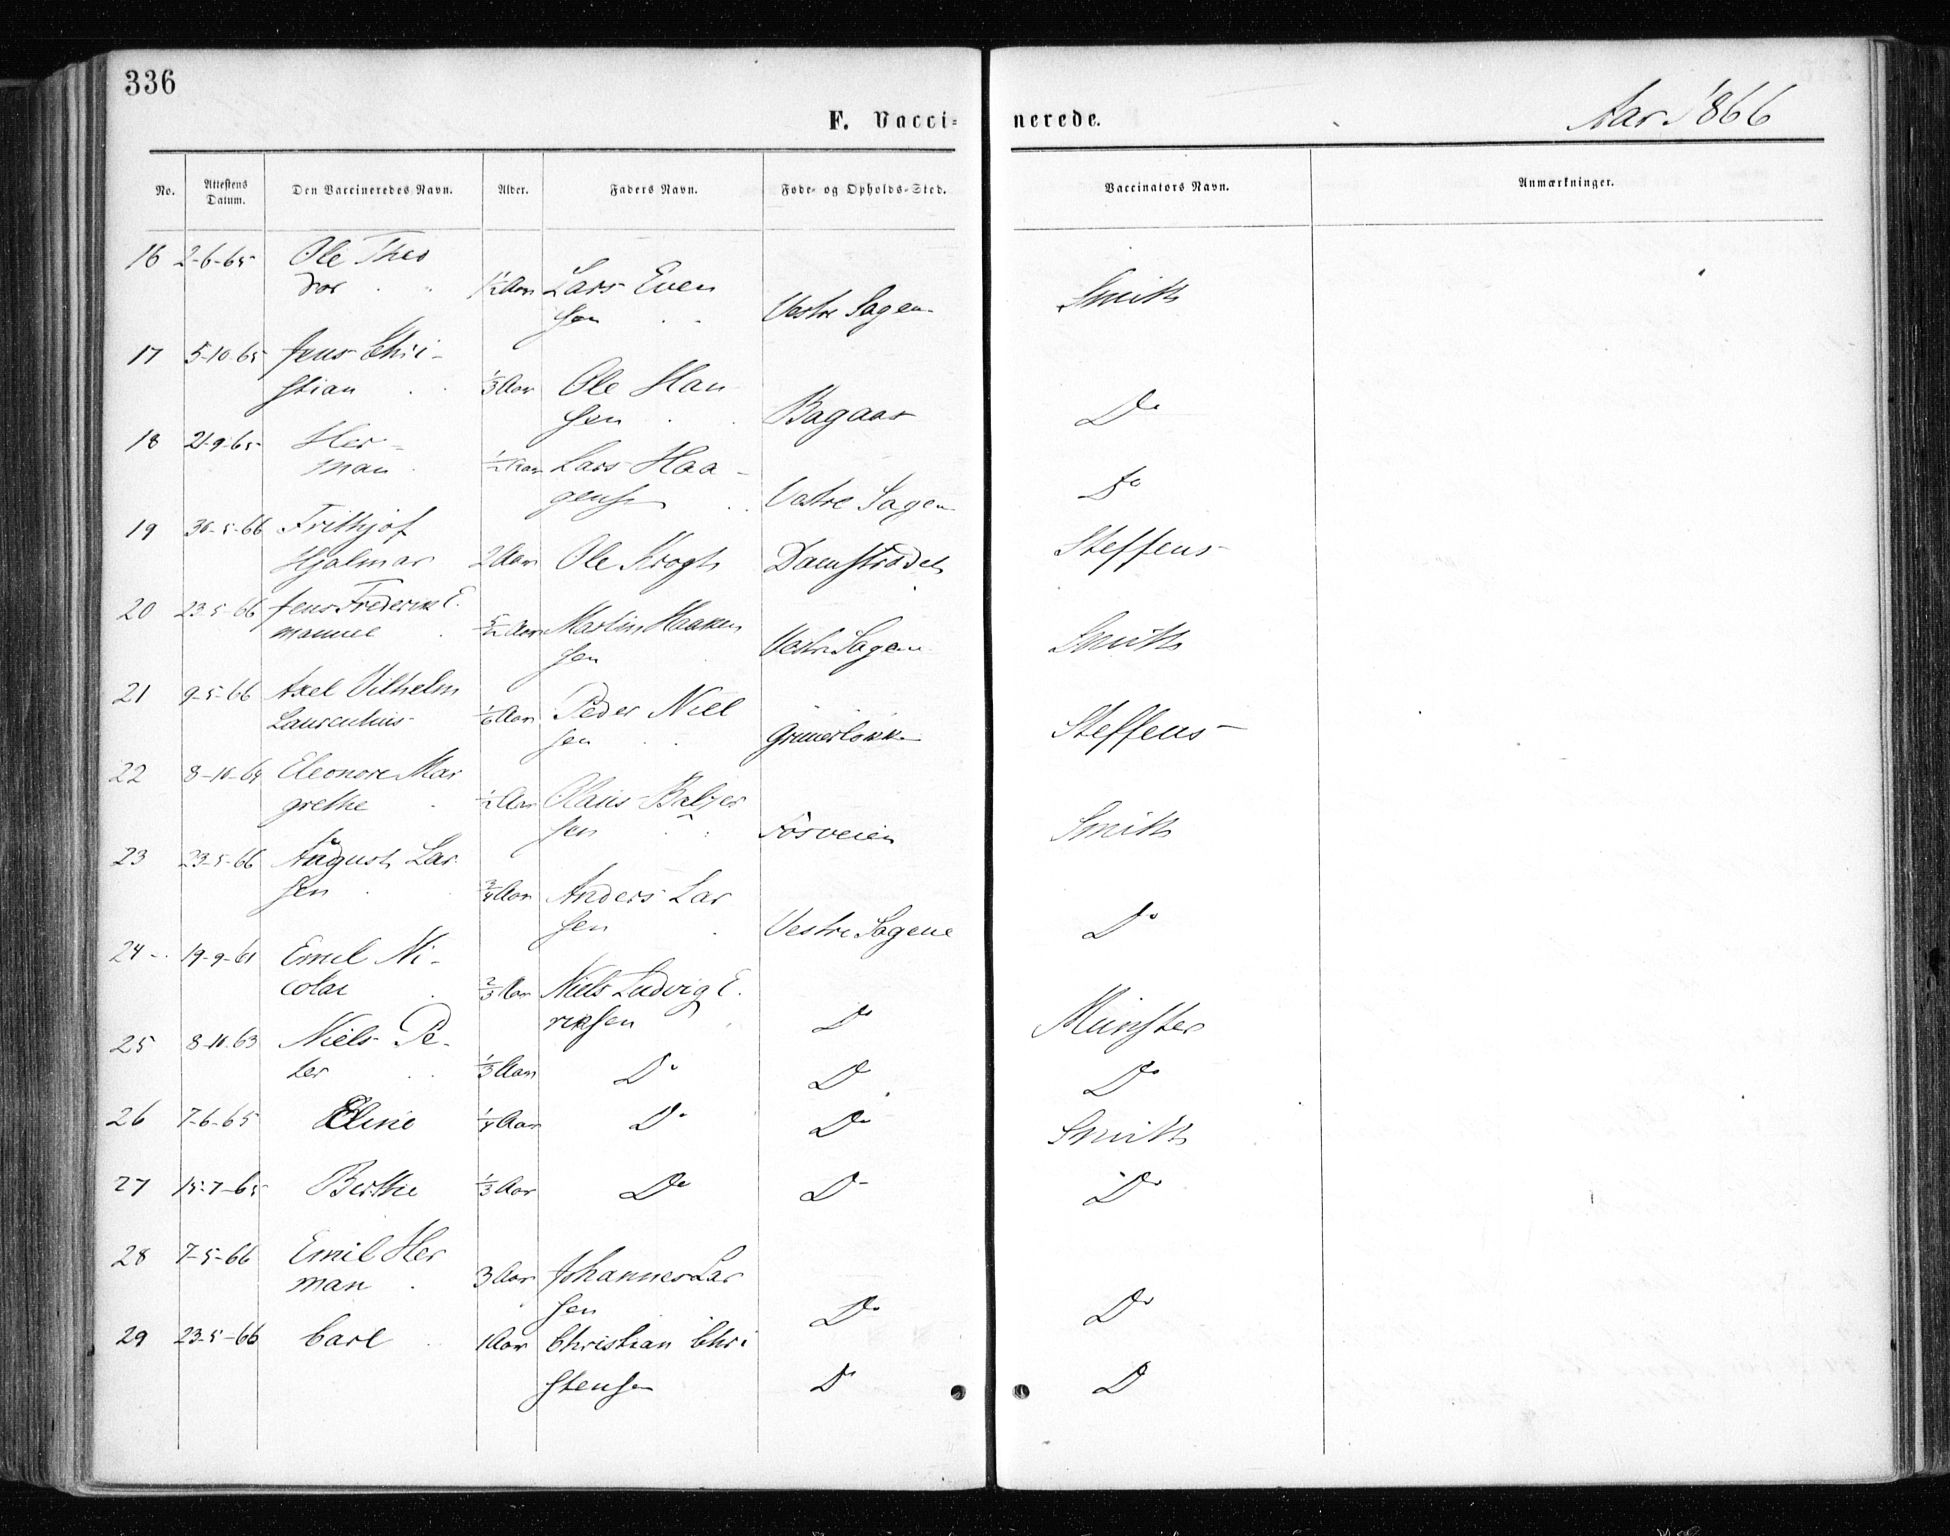 336
F. Vacci- nerede. Aar 1866
No. Attestens Datum. Den Vaccineredes Navn. Alder. Faders Navn. Føde- og Opholds-Sted. Vaccinators Navn. Anmærkninger.
16 2-6-65 Ole Theo
dor 1½ Aar Lars Even
sen Vestre Sagen Smith
17 5-10-65 Jens Chri-
stian ⅓ Aar Ole Han
sen Bagaas Do
18 21-9-65 Her-
man ½ Aar Lars Haa-
gensen Vestre Sagen Do
19 30-5-66 Frithjof
Hjalmar 2 Aar Ole Krogh Damstrædet Steffens
20 23-5-66 Jens Frederik E.
manuel Aar Martin Haaken
sen Vestre Sagen Smith
21 9-5-66 Axel Vilhelm
Laurentius Aar Peder Niel
sen Grünerløkk Steffens
22 8-10-64 Eleonore Mar
grethe ½ Aar Olaus Balzer
sen Fosveien Smith
23 23-5-66 August Lar
sen ¾ Aar Anders Lar
sen Vestre Sagene Do
24 19-9-61 Emil Ni-
colai ⅔ Aar Niels Ludvig E.
riksen Do Münster
25 8-11-63 Niels Pe-
ter ⅓ Aar Do Do Do
26 7-6-65 Eline ¼ Aar Do Do Smith
27 15-7-65 Berthe ⅓ Aar Do Do Do
28 7-5-66 Emil Her
man 3 Aar Johannes Lar
sen Do Do
29 23-5-66 Carl 1 Aar Christian Chri
stensen Do D